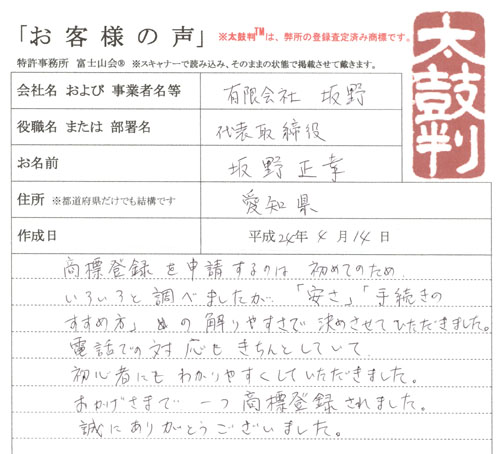 「お客様の声」 ※太鼓判TMは、弊所の登録査定済み商標です。
太鼓判
特許事務所 富士山会® ※スキャナーで読み込み、そのままの状態で掲載させて戴きます。
会社名 および 事業者名等 有限会社 坂野
役職名 または 部署名 代表取締役
お名前 坂野正幸
住所 ※都道府県だけでも結構です 愛知県
作成日 平成24年4月14日
商標登録を申請するのは 初めてのため
いろいろと調べましたが、「安さ」「手続きの
すすめ方」の解りやすさで決めさせていただきました。
電話での対応もきちんとしていて、
初心者にもわかりやすくしていただきました。
おかげさまで 一つ商標登録されました。
誠にありがとうございました。